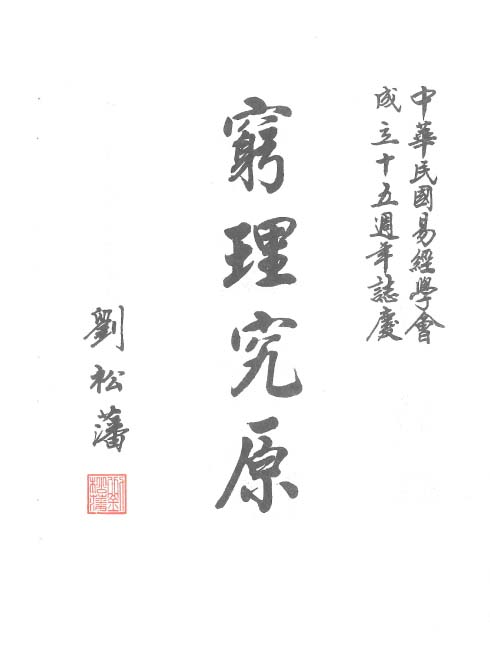 中華民國易經學會
成立十五週年誌慶
窮理究原
劉松藩
劉松藩